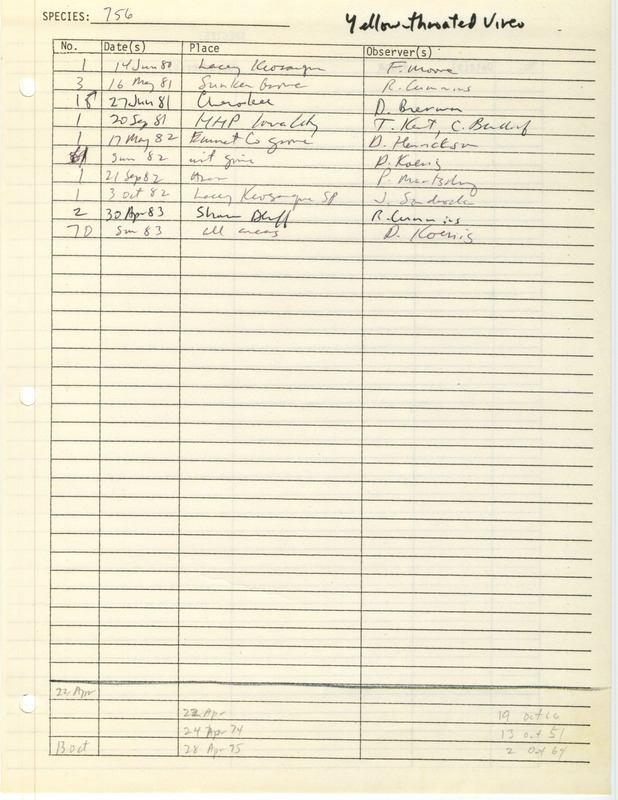 SPECIES: 756 Yellow-throated Vireo
No. Date(s) Place Observer(s)
1 14 Jun 80 Lacey Keosauqua F. Moore
3 16 May 81 Sunken Grove R. Cummins
18 27 Jun 81 Cherokee D. Bierman
1 20 Sep 81 MHP Iowa City T. Kent, C. Bendorf
1 17 May 82 Emmet Co grove D. Henrickson
Jun 82 D. Koenig
1 21 Sep 82 P. Martsching
1 3 Oct 82 Lacey Keosauqua SP J. Sandrock
2 30 Apr 83 Sharon Bluff R. Cummins
70 Sum 83 all areas D. Koenig
22 Apr
22 Apr 19 Oct
24 Apr 74 13 Oct 51
13 Oct 28 Apr 75 2 Oct 64